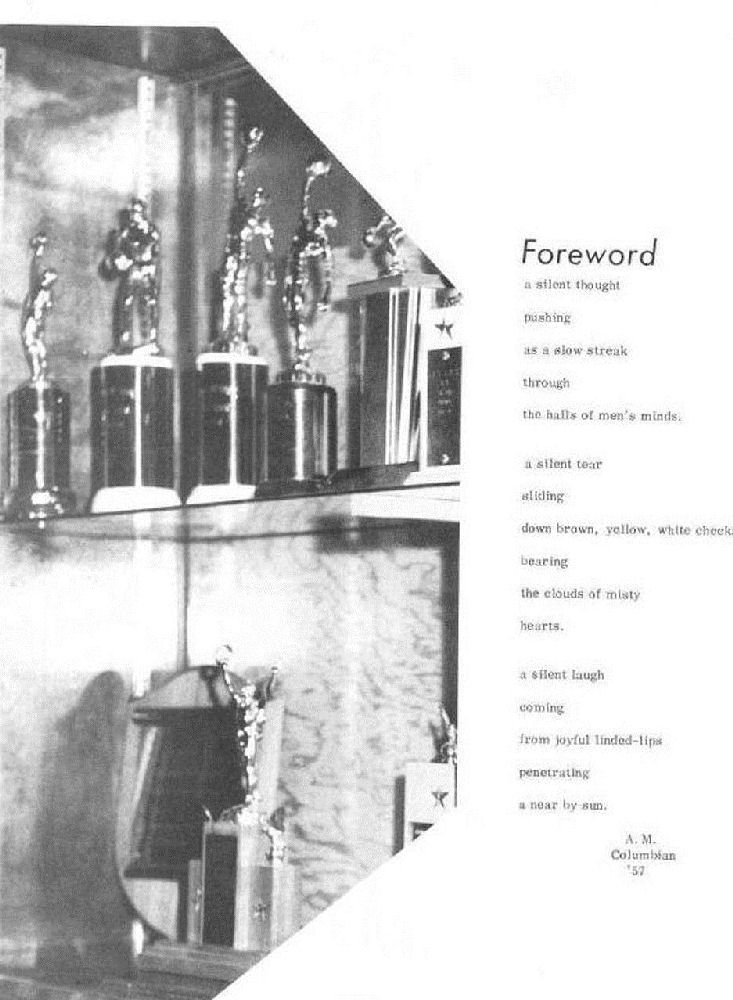 Foreword
a silent thought
pushing
as a slow streak
through
the halls of men's minds.
a silent tear
sliding
down brown, yellow, white cheek
bearing
the clouds of misty
hearts.
a silent laugh
coming
from joyful linded-lips
penetrating
a near by sun.
A. M.
Columbian
'57